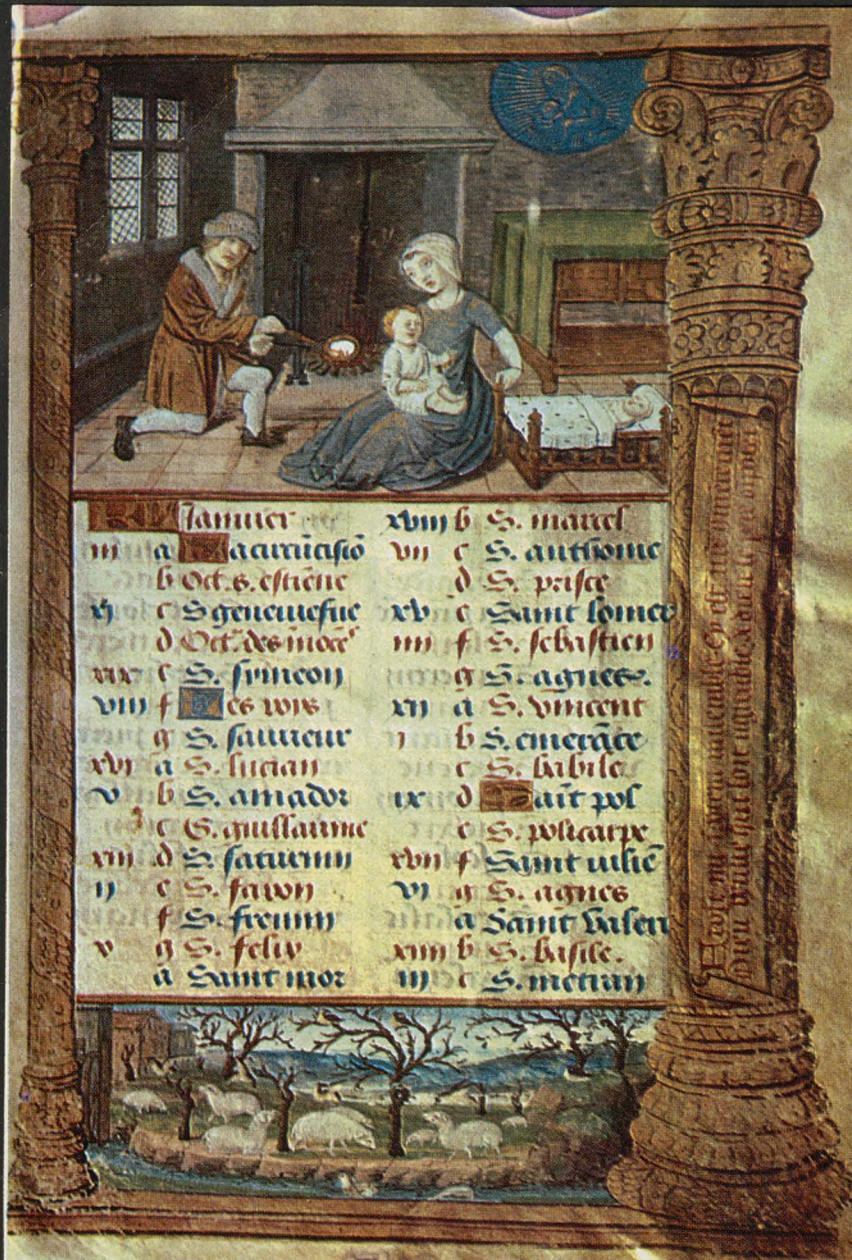 KL Januier
iii a La circuncisiō
b Oct. s. estiene
xi c S geneuiefue
d Oct. des
xix e S. symeon
viii f Les rois
g S. sauueur
xvi a S. lucian
v b S. amador
c S. guillaume
xiii d S. saturnin
ii e S. sauon
f S. fremin
v g S. felix
a Saint mor
xviii b S. marcel
vii c S. anthoine
d S. prisce
xv e Saint lomer
iiii f S. sebastien
g S. agnes.
xii a S. vincent
i b S. emerāce
c S. babile
ix d Saīt pol
e S. policarpe
xvii f Saint iuliē
vi g S. agnes
a Saint valeri
xiiii b S. basile.
iii c S. metran